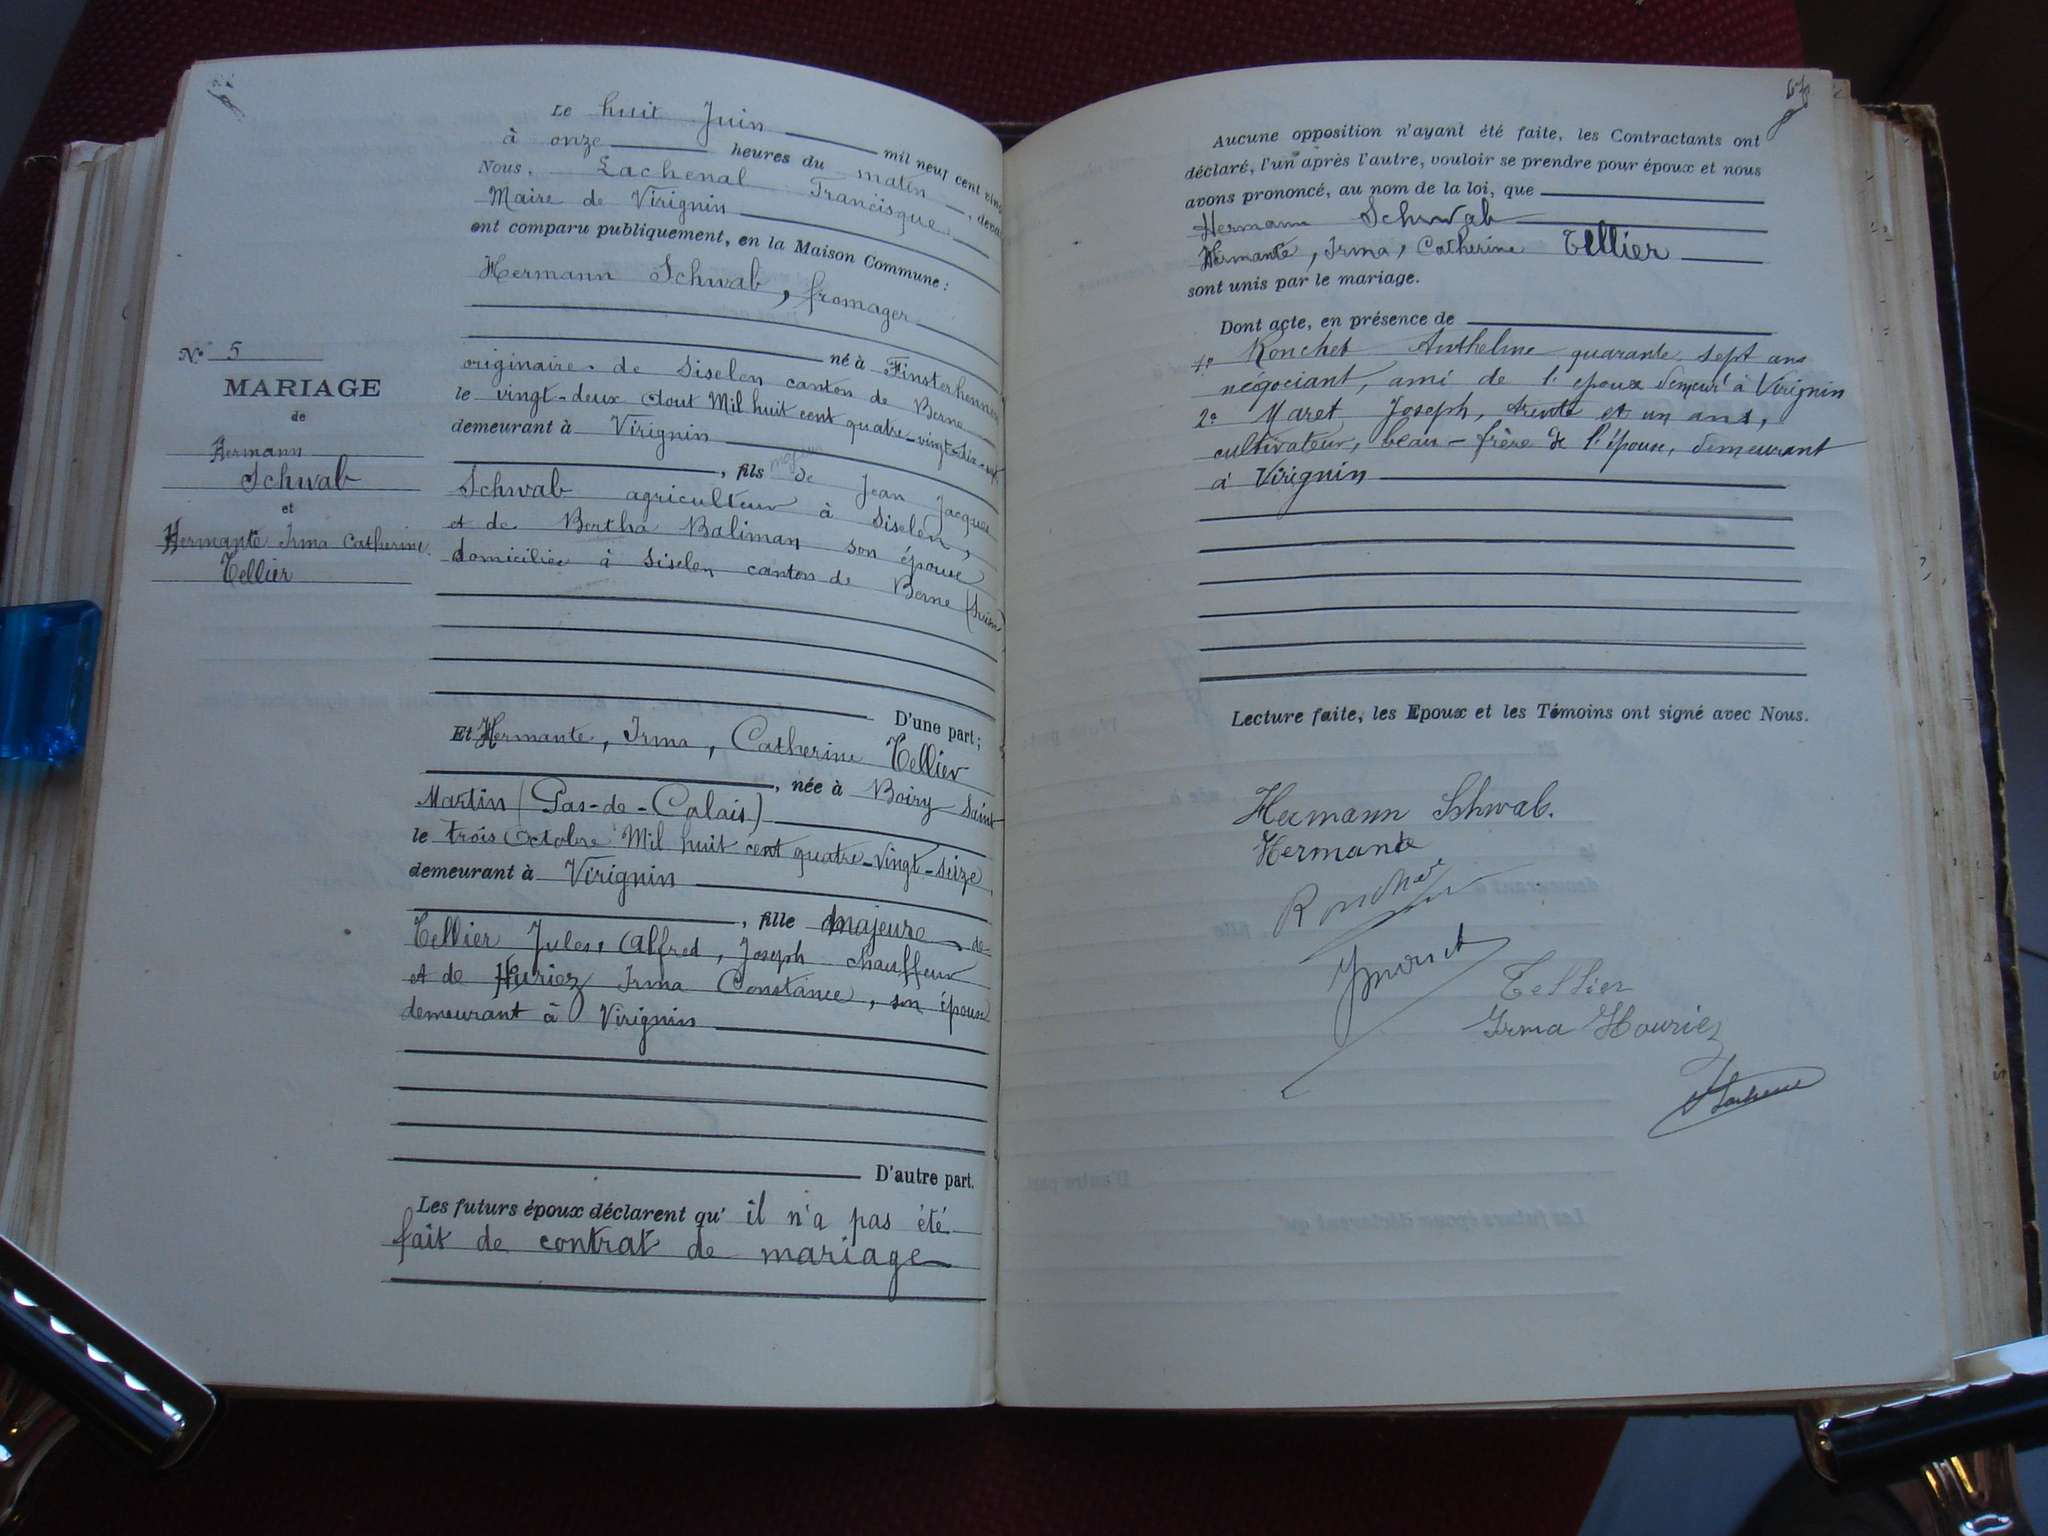 Le huit Juin mil neuf cent
à onze heures du matin,
Nous, Lachenal Francisque
Maire de Virignin
ont comparu publiquement, en la Maison Commune :
Hermann Schwab, fromager
né à
originaire de Siselen canton de Berne
le vingt-deux Aout Mil huit cent quatre-vingt-
demeurant à Virignin
, fils majeur de Jean Jacques
Schwab agriculteur à Siselen,
et de Bertha Baliman son épouse
domiciliée à Siselen canton de Berne
N° 5
MARIAGE
de
Hermann
Schwab
et
Hermante Irma Catherine
Tellier
D'une part;
Et Hermante, Irma, Catherine Tellier
, née à Boiry Saint-
Martin (Pas-de-Calais)
le trois Octobre Mil huit cent quatre-vingt-seize,
demeurant à Virignin
, fille majeure de
Tellier Jules, Alfred, Joseph chauffeur
et de Huriez Irma Constance, son épouse
demeurant à Virignin
D'autre part.
Les futurs époux déclarent qu' il n'a pas été
fait de contrat de mariage
Aucune opposition n'ayant été faite, les Contractants ont
déclaré, l'un après l'autre, vouloir se prendre pour époux et nous
avons prononcé, au nom de la loi, que
Hermann Schwab
Hermante, Irma, Catherine Tellier
sont unis par le mariage.
Dont acte, en présence de
1° Ronchet Anthelme quarante sept ans
négociant, ami de l'époux demeurt à Virignin
2° Maret Joseph, trente et un ans,
cultivateur, beau-frère de l'épouse, demeurant
à Virignin
Lecture faite, les Epoux et les Témoins ont signé avec Nous.
Hermann Schwab.
Hermante
Tellier
Irma Houriez